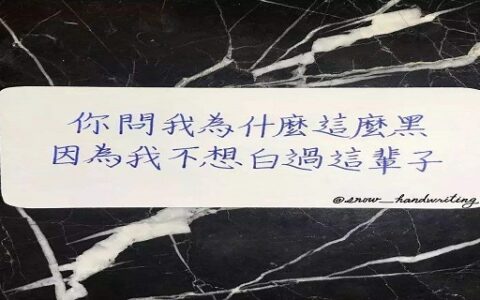 你問我為什麼這麼黑
因為我不想白過這輩子
@snow_handwriting